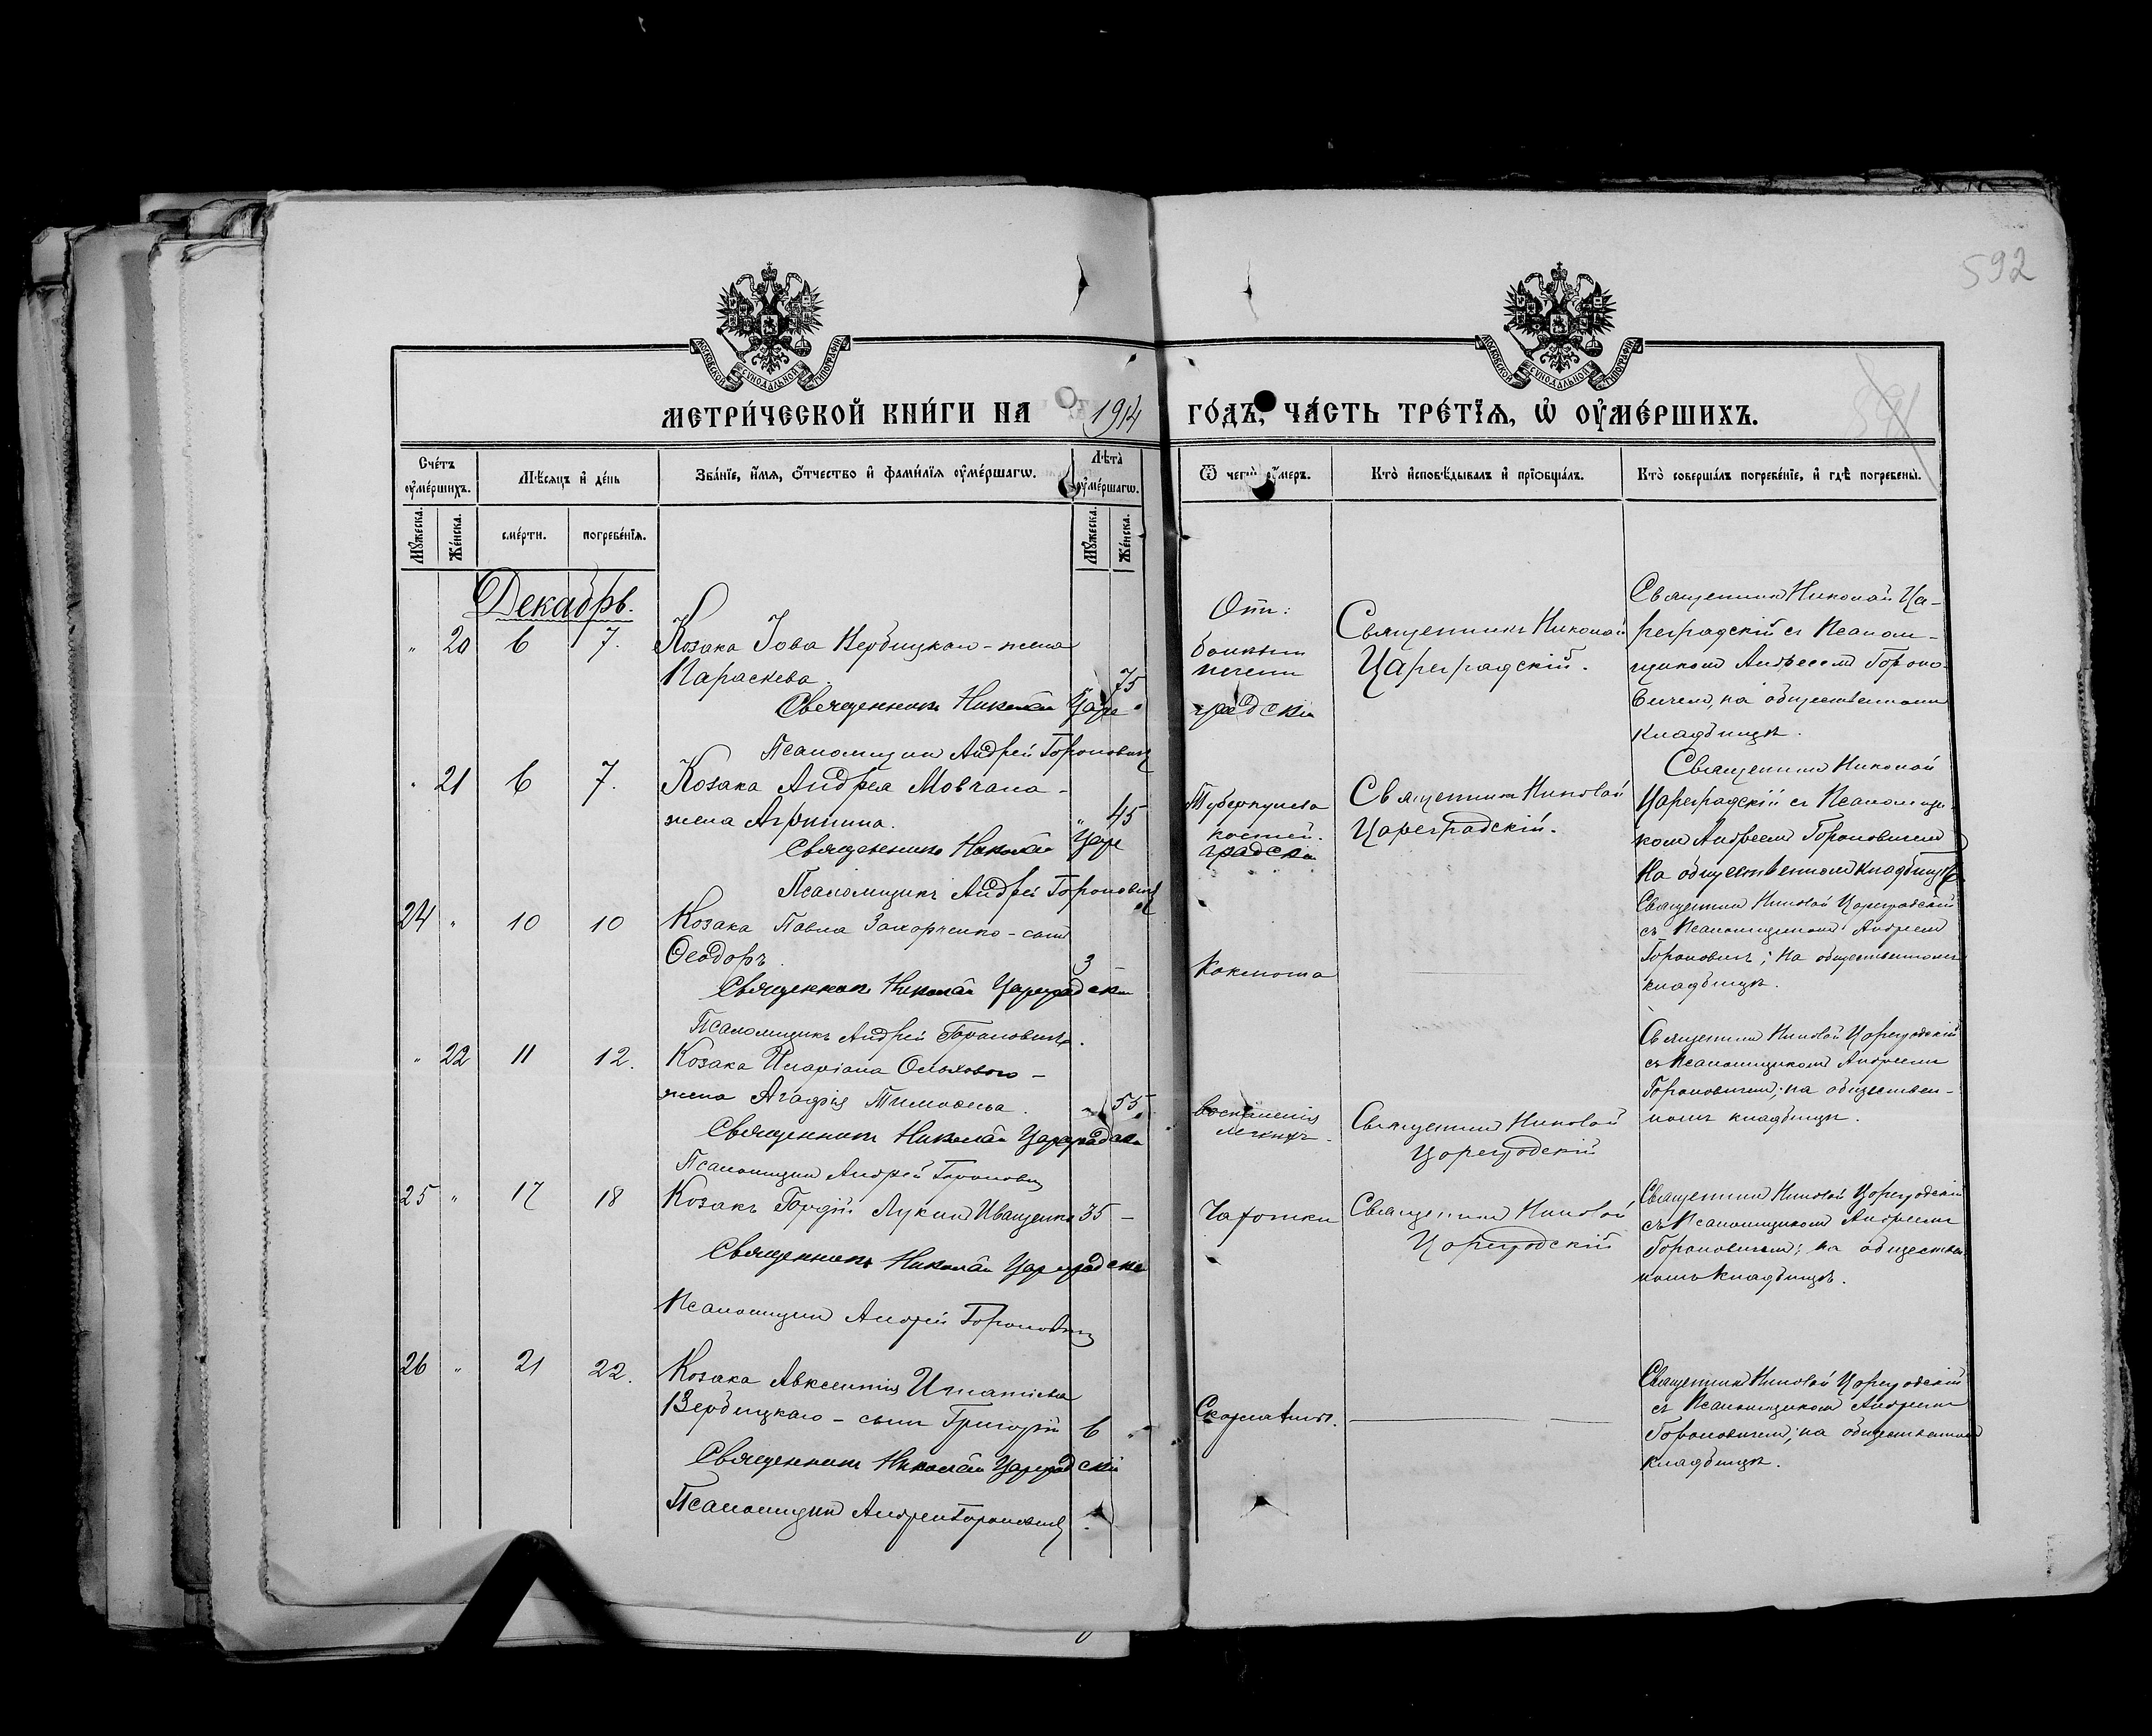 592
МОСКОВСКОЙ СѴНОДАЛЬНОЙ ТИПОГРАФІИ
МОСКОВСКОЙ СѴНОДАЛЬНОЙ ТИПОГРАФІИ
МЕТРИ́ЧЕСКОЙ КНИ́ГИ НА 1914 ГО́ДЪ, ЧА́СТЬ ТРЕ́ТЇѦ, Ѡ҆ ОУ҆МЕ́РШИХЪ.
591
Сче́тъ оу҆ме́ршихъ.
Мѣ́сяцъ и҆ де́нь
Зва́нїе, и҆́мѧ, ѻ҆́тчество и҆ фами́лїѧ оу҆ме́ршагѡ.
Лѣ́та оу҆ме́ршагѡ.
Ѿ чегѡ̀ оу҆́меръ.
Кто̀ и҆сповѣ́дывалъ и҆ прїѡбща́лъ.
Кто̀ соверша́лъ погребе́нїе, и҆ гдѣ̀ погребены̀.
Мꙋ́жеска.
Же́нска.
сме́рти.
погребе́нїѧ.
Мꙋ́жеска.
Же́нска.
Декабрь.
" 20 6 7.
Козака Іова Вербицкаго - жена
Параскева.
75
Священникъ Николай Царе
градскій
Псаломщикъ Андрей Гороновичъ
От:
печени
Священникъ Николай
Цареградскій.
Священникъ Николай Ца-
реградскій съ Псалом-
щикомъ Андреемъ Гороно-
вичемъ, на общественномъ
кладбищѣ.
" 21 6 7.
Козака Андрея Мовчана -
жена Агрипина.
" 45
Священникъ Николай Царе
градскій
Псаломщикъ Андрей Гороновичъ
Туберкулеза
костей.
Священникъ Николай
Цареградскій.
Священникъ Николай
Цареградскій съ Псаломщи-
комъ Андреемъ Гороновичемъ
на общественномъ кладбищѣ
24 " 10 10
Козака Павла Захорченко - сынъ
Ѳеодоръ.
3 -
Священникъ Николай Цареградскій
Псаломщикъ Андрей Гороновичъ.
Коклюша
Священникъ Николай Цареградскій
съ Псаломщикомъ Андреемъ
Гороновичъ; на общественномъ
кладбищѣ.
" 22 11 12.
Козака Иларіона Ольхового -
жена Агафія Тимофеева.
" 55
Священникъ Николай Цареградскій
Псаломщикъ Андрей Гороновичъ
воспаленія
легкихъ.
Священникъ Николай
Цареградскій
Священникъ Николай Цареградскій
съ Псаломщикомъ Андреемъ
Гороновичемъ; на обществен-
номъ кладбищѣ.
25 " 17 18
Козакъ Гордій Лукинъ Иващенко 35 -
Священникъ Николай Цареградскій
Псаломщикъ Андрей Гороновичъ
Чахотки
Священникъ Николай
Цареградскій
Священникъ Николай Цареградскій
съ Псаломщикомъ Андреемъ
Гороновичемъ; на обществен-
номъ кладбищѣ.
26 " 21 22.
Козака Авксентія Игнатіева
Вербицкаго - сынъ Григорій 6 "
Священникъ Николай Цареградскій
Псаломщикъ Андрей Гороновичъ
Скарлатины.
Священникъ Николай Цареградскій
съ Псаломщикомъ Андреемъ
Гороновичемъ; на общественномъ
кладбищѣ.